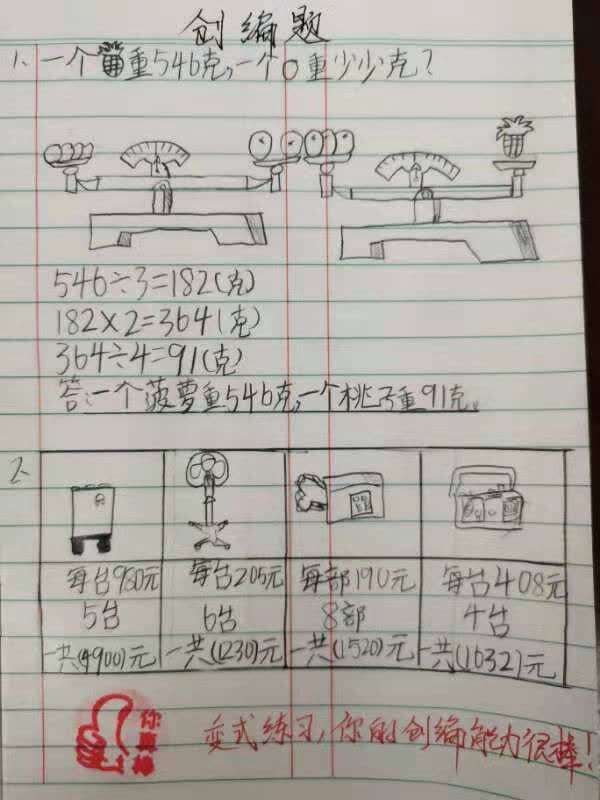 创编题
1、一个重546克,一个重少少克?
546÷3=182(克)
182×2=364(克)
364÷4=91(克)
答:一个菠萝重546克,一个桃子重91克。
2、
每台980元 每台205元 每部190元 每台408元
5台 6台 8部 4台
一共(4900)元 一共(1230)元 一共(1520)元 一共(1632)元
你真棒
变式练习,你的创编能力很棒!